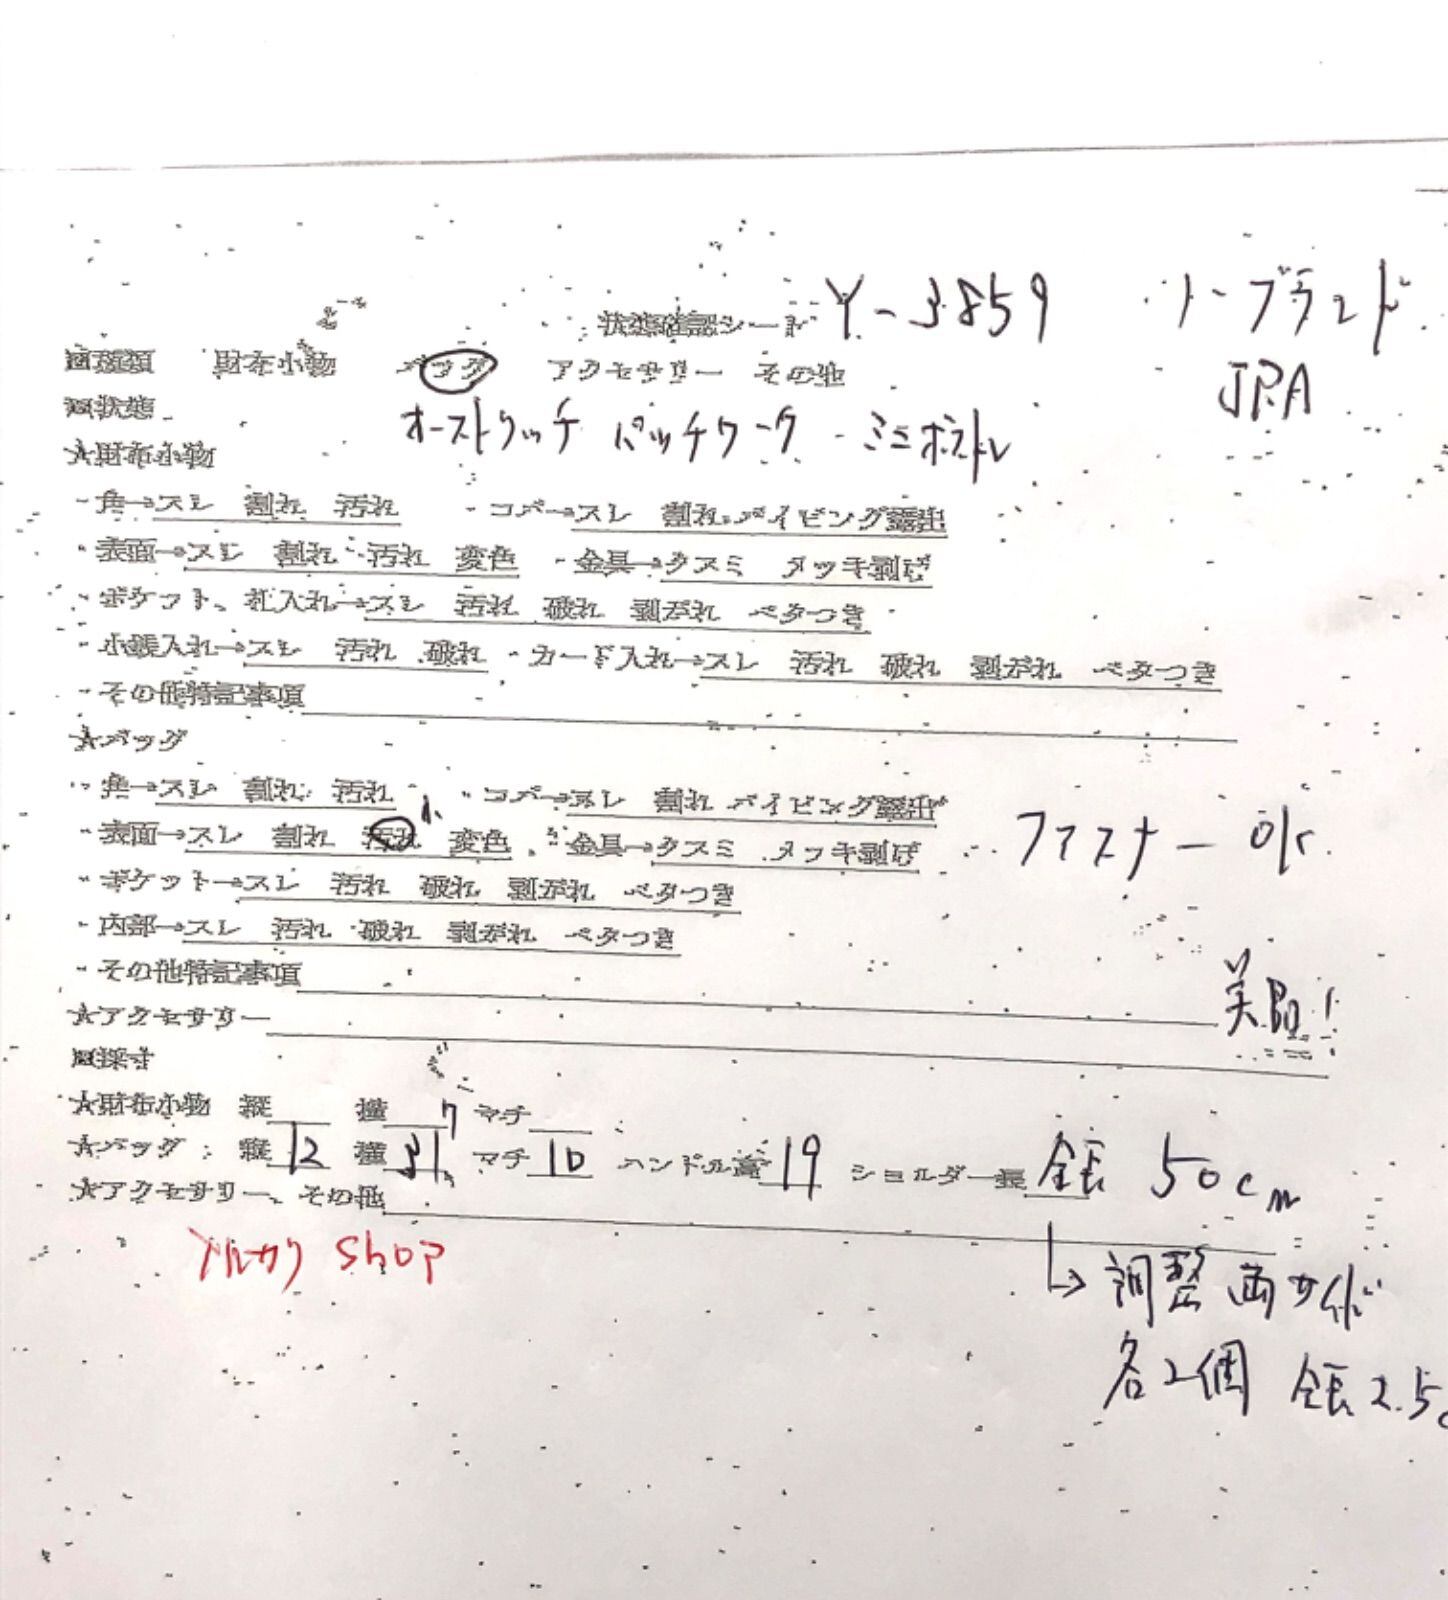 状態確認シート Y-3859 ノーブランド
回種類 財布小物 バッグ アクセサリー その他 JRA
回状態 オーストリッチ パッチワーク ミニボストン
★財布小物
・角→スレ 割れ 汚れ ・コバ→スレ 割れ パイピング露出
・表面→スレ 割れ 汚れ 変色 ・金具→クスミ メッキ剥げ
・ポケット、札入れ→スレ 汚れ 破れ 剥がれ ベタつき
・小銭入れ→スレ 汚れ 破れ ・カード入れ→スレ 汚れ 破れ 剥がれ ベタつき
・その他特記事項
★バッグ
・角→スレ 割れ 汚れ ・コバ→スレ 割れ パイピング露出
・表面→スレ 割れ 汚れ 小 変色 ・金具→クスミ メッキ剥げ ファスナー ok
・ポケット→スレ 汚れ 破れ 剥がれ ベタつき
・内部→スレ 汚れ 破れ 剥がれ ベタつき
・その他特記事項 美品!
★アクセサリー
回採寸
★財布小物 縦 横 マチ
★バッグ 縦 12 横 マチ 10 ハンドル高 19 ショルダー長 全長 50cm
★アクセサリー、その他
メルカリ shop
↳ 調整 両サイド
各2個 全長2.5c